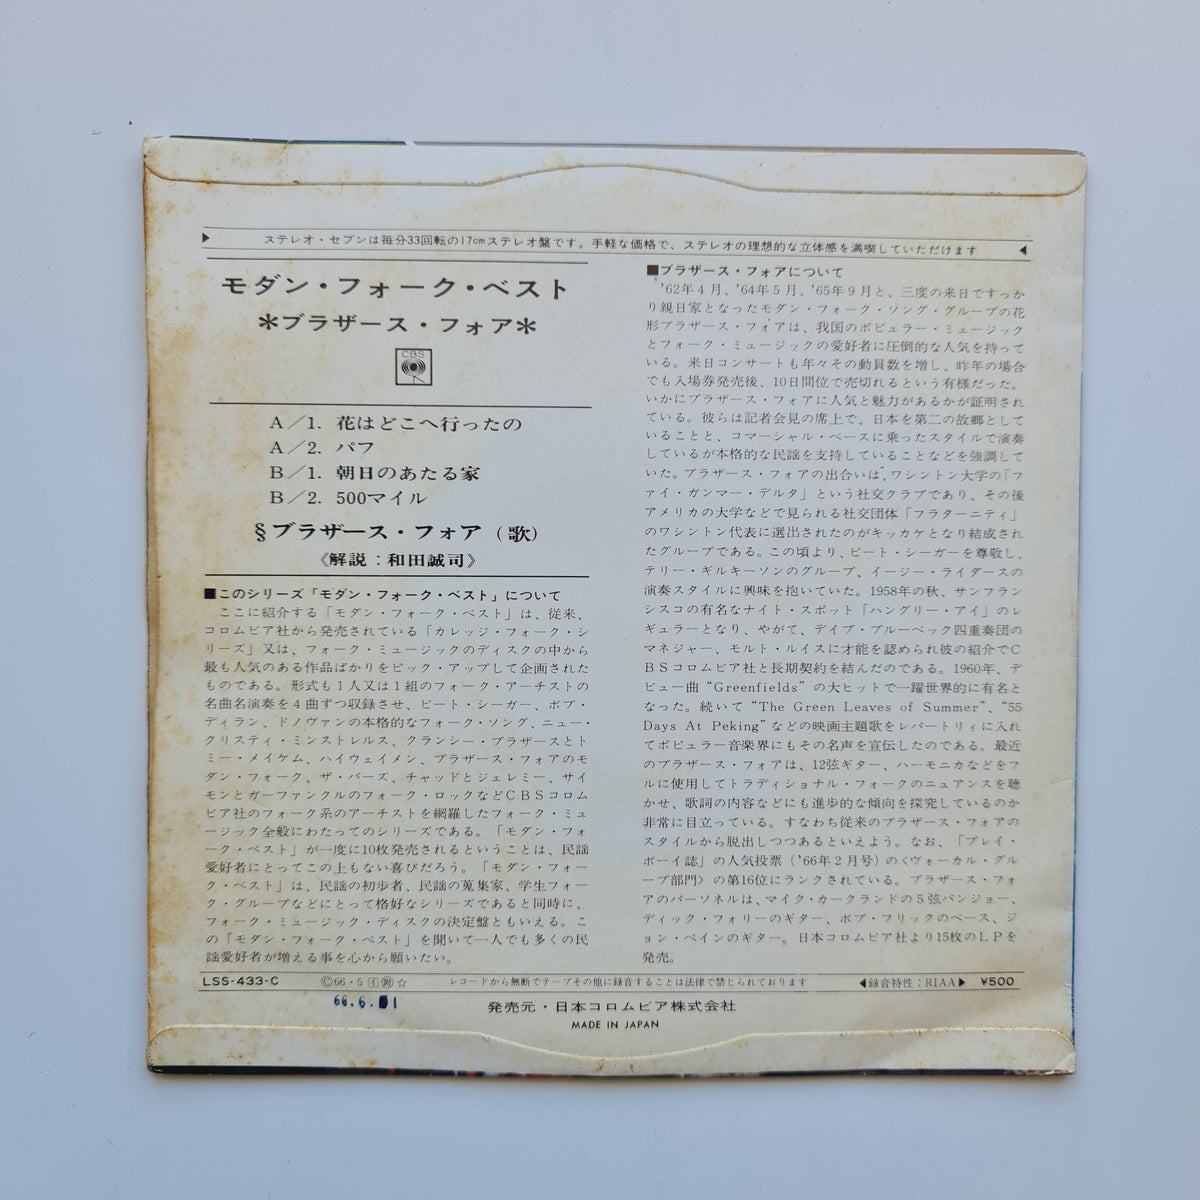 ▶ ステレオ・セブンは毎分33回転の17cmステレオ盤です。手軽な価格で、ステレオの理想的な立体感を満喫していただけます ◀
モダン・フォーク・ベスト
＊ブラザース・フォア＊
CBS
A／1. 花はどこへ行ったの
A／2. パフ
B／1. 朝日のあたる家
B／2. 500マイル
§ブラザース・フォア（歌）
《解説：和田誠司》
■このシリーズ「モダン・フォーク・ベスト」について
ここに紹介する「モダン・フォーク・ベスト」は、従来、
コロムビア社から発売されている「カレッジ・フォーク・シ
リーズ」又は、フォーク・ミュージックのディスクの中から
最も人気のある作品ばかりをピック・アップして企画された
ものである。形式も1人又は1組のフォーク・アーチストの
名曲名演奏を4曲ずつ収録させ、ピート・シーガー、ボブ・
ディラン、ドノヴァンの本格的なフォーク・ソング、ニュー・
クリスティ・ミンストレルス、クランシー・ブラザースとト
ミー・メイケム、ハイウェイメン、ブラザース・フォアのモ
ダン・フォーク、ザ・バーズ、チャッドとジェレミー、サイ
モンとガーファンクルのフォーク・ロックなどCBSコロム
ビア社のフォーク系のアーチストを網羅したフォーク・ミュ
ージック全般にわたってのシリーズである。「モダン・フォ
ーク・ベスト」が一度に10枚発売されるということは、民謡
愛好者にとってこの上もない喜びだろう。「モダン・フォー
ク・ベスト」は、民謡の初歩者、民謡の蒐集家、学生フォー
ク・グループなどにとって格好なシリーズであると同時に、
フォーク・ミュージック・ディスクの決定盤ともいえる。こ
の「モダン・フォーク・ベスト」を聞いて一人でも多くの民
謡愛好者が増える事を心から願いたい。
■ブラザース・フォアについて
'62年4月、'64年5月、'65年9月と、三度の来日ですっか
り親日家となったモダン・フォーク・ソング・グループの花
形ブラザース・フォアは、我国のポピュラー・ミュージック
とフォーク・ミュージックの愛好者に圧倒的な人気を持って
いる。来日コンサートも年々その動員数を増し、昨年の場合
でも入場券発売後、10日間位で売切れるという有様だった。
いかにブラザース・フォアに人気と魅力があるかが証明され
ている。彼らは記者会見の席上で、日本を第二の故郷として
いることと、コマーシャル・ベースに乗ったスタイルで演奏
しているが本格的な民謡を支持していることなどを強調して
いた。ブラザース・フォアの出合いは、ワシントン大学の「フ
ァイ・ガンマー・デルタ」という社交クラブであり、その後
アメリカの大学などで見られる社交団体「フラターニティ」
のワシントン代表に選出されたのがキッカケとなり結成され
たグループである。この頃より、ピート・シーガーを尊敬し、
テリー・ギルキーソンのグループ、イージー・ライダースの
演奏スタイルに興味を抱いていた。1958年の秋、サンフラン
シスコの有名なナイト・スポット「ハングリー・アイ」のレ
ギュラーとなり、やがて、デイブ・ブルーベック四重奏団の
マネジャー、モルト・ルイスに才能を認められ彼の紹介でC
BSコロムビア社と長期契約を結んだのである。1960年、デ
ビュー曲“Greenfields”の大ヒットで一躍世界的に有名と
なった。続いて“The Green Leaves of Summer”、“55
Days At Peking”などの映画主題歌をレパートリィに入れ
てポピュラー音楽界にもその名声を宣伝したのである。最近
のブラザース・フォアは、12弦ギター、ハーモニカなどをフ
ルに使用してトラディショナル・フォークのニュアンスを聴
かせ、歌詞の内容などにも進歩的な傾向を探究しているのか
非常に目立っている。すなわち従来のブラザース・フォアの
スタイルから脱出しつつあるといえよう。なお、「プレイ・
ボーイ誌」の人気投票（'66年2月号）の〈ヴォーカル・グル
ープ部門〉の第16位にランクされている。ブラザース・フォ
アのパーソネルは、マイク・カークランドの5弦バンジョー、
ディック・フォリーのギター、ボブ・フリックのベース、ジ
ョン・ペインのギター。日本コロムビア社より15枚のLPを
発売。
LSS-433-C Ⓒ66・5 ☆ レコードから無断でテープその他に録音することは法律で禁じられております ◀録音特性：RIAA▶ ¥500
66.6.
発売元・日本コロムビア株式会社
MADE IN JAPAN